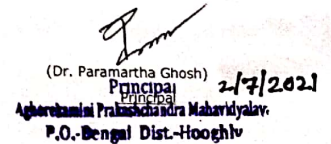 (Dr. Paramartha Ghosh)
Principal 2/7/2021
Principal
Aghorekamini Prakashchandra Mahavidyalay.
P.O.-Bengai Dist.-Hooghly